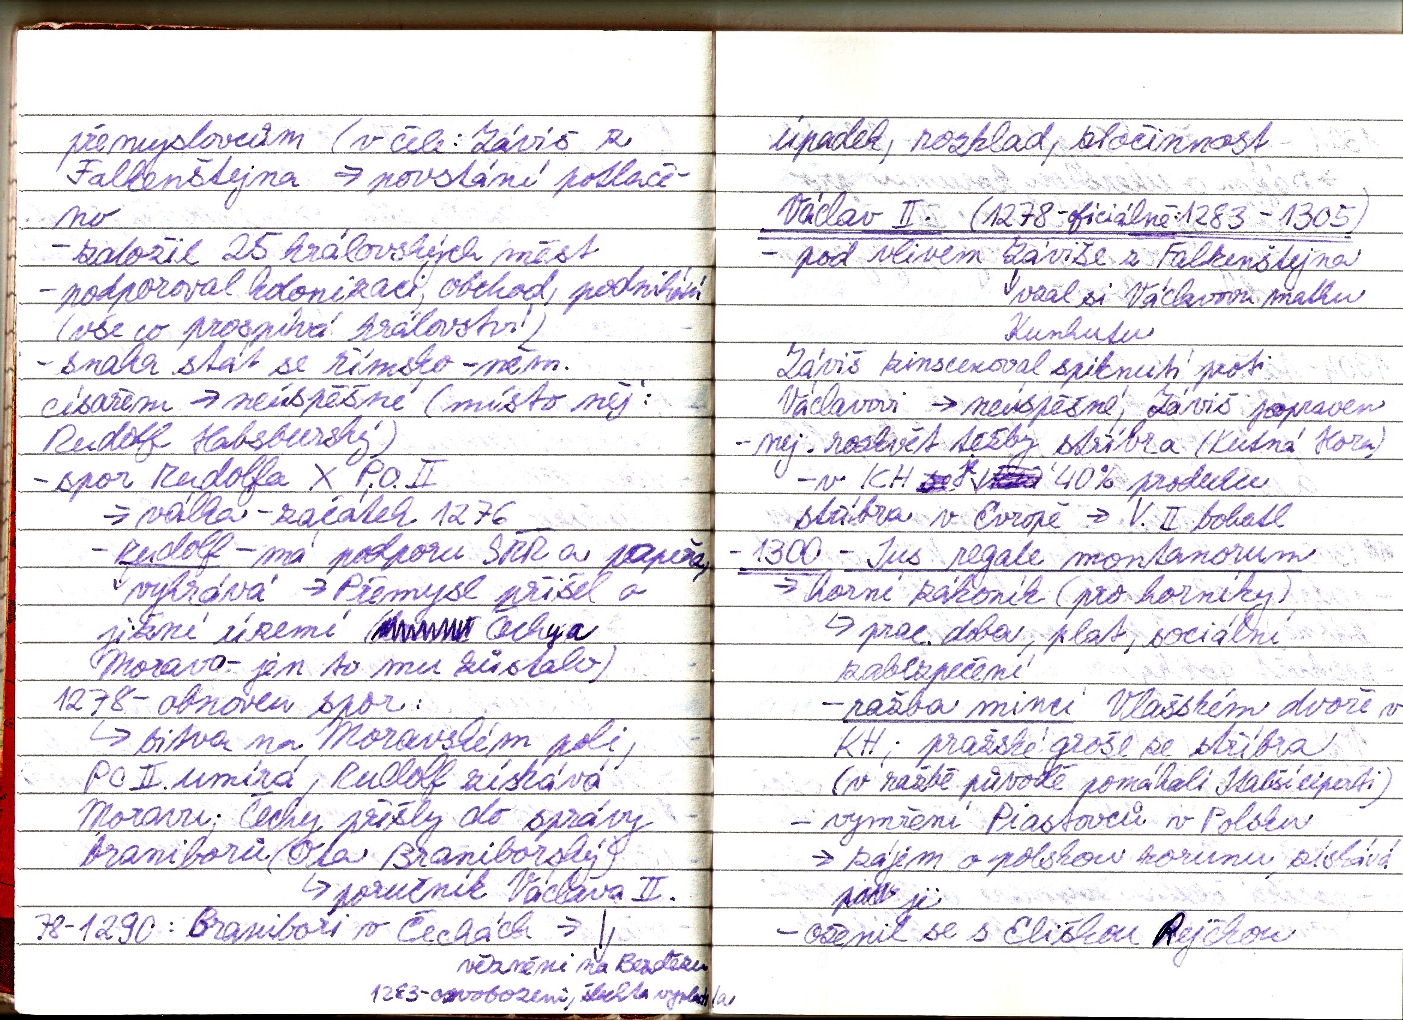 přemyslovcům (v čele: Záviš z
Falkenštejna → povstání potlače-
no
- založil 25 královských měst
- podporoval kolonizaci, obchod, podnikání
(vše co prospívá království)
- snaha stát se římsko-něm.
císařem → neúspěšné (místo něj:
Rudolf Habsburský)
- spor Rudolfa X P.O. II
→ válka - začátek 1276
- Rudolf - má podporu SŘŘ a papeže,
vyhrává → Přemysl přišel o
jižní území ( Čechy a
Morava - jen to mu zůstalo)
1278 - obnoven spor:
↳ bitva na Moravském poli,
PO II. umírá, Rudolf získává
Moravu; Čechy přišly do správy
braniborů (Ota Braniborský)
↳ poručník Václava II.
78-1290: Braniboři v Čechách →
věznění na Bezdězu
1283 - osvobození, šlechta vyplatila
úpadek, rozklad, zločinnost
Václav II. (1278 - oficiálně: 1283 - 1305)
- pod vlivem Záviše z Falkenštejna
vzal si Václavovu matku
Kunhutu
Záviš zinscenoval spiknutí proti
Václavovi → neúspěšné, Záviš popraven
- nej. rozkvět těžby stříbra (Kutná Hora)
- v KH 40% produkce
stříbra v Evropě → V. II bohatl
- 1300 - Ius regale montanorum
→ horní zákoník (pro horníky)
↳ prac. doba, plat, sociální
zabezpečení
- ražba mincí Vlašském dvoře v
KH; pražské groše ze stříbra
(v ražbě původě pomáhali )
- vymření Piastovců v Polsku
→ zájem o polskou korunu, získává
ji
- oženil se s Eliškou Rejčkou